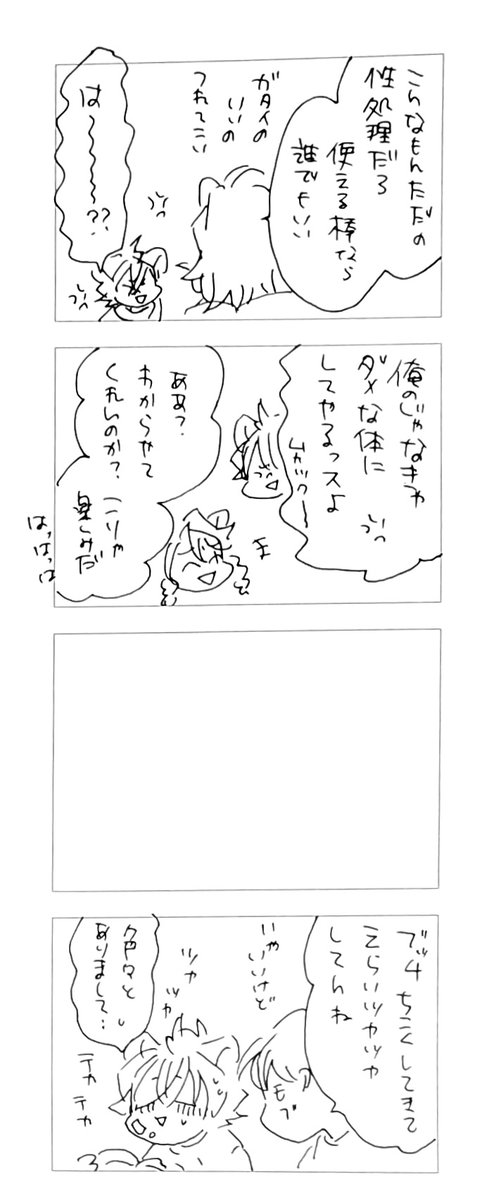 こんなもんただの
性処理だろ
使える棒なら
誰でもいい
ガタイの
いいの
つれてこい
は〜〜〜〜??
俺のじゃなきゃ
ダメな体に
してやるっスよ
ムカック〜
ああ?
わからせて
くれんのか?
こりゃ
楽しみだ
はっはっは
ブッチ ちこくしてきて
えらいツヤツヤ
してんね
いやいいけど
モブ
ツヤ
ツヤ
色々と
ありまして…
テカ
テカ